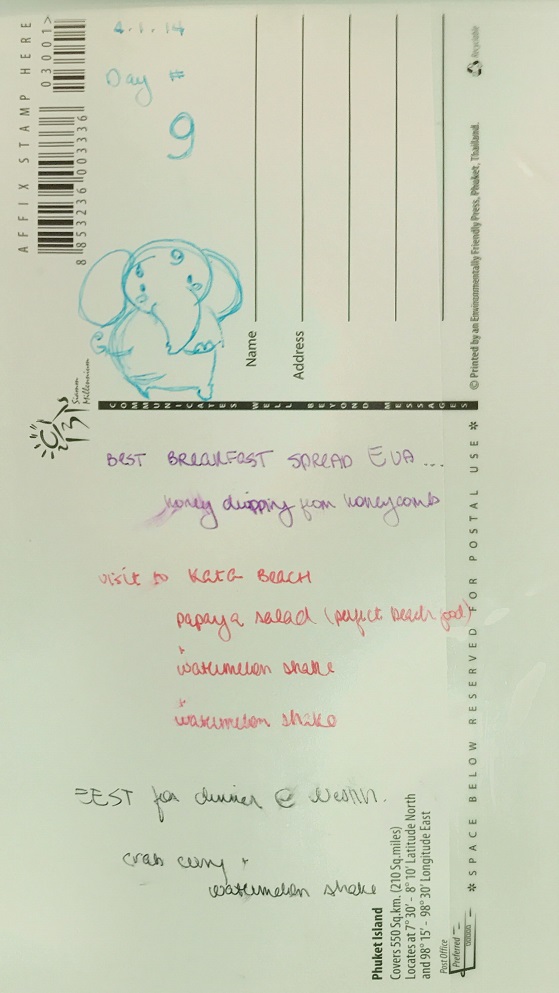 4.1.14
Day #
9
BEST BREAKFAST SPREAD EVA ...
honey dripping from honeycomb
visit to KATA BEACH
papaya salad (perfect beach food)
+
watermelon shake
+
watermelon shake
EEST for dinner @ Westin.
crab curry +
watermelon shake
AFFIX STAMP HERE
03001>
8 853236 003336
Siamm
Millennium
COMMUNICATES WELL BEYOND MESSAGES
Name
Address
© Printed by an Environmentally Friendly Press, Phuket, Thailand.
Recyclable
✲ SPACE BELOW RESERVED FOR POSTAL USE ✲
Phuket Island
Covers 550 Sq.km. (210 Sq.miles)
Locates at 7° 30' - 8° 10' Latitude North
and 98° 15' - 98° 30' Longitude East
Post Office
Preferred